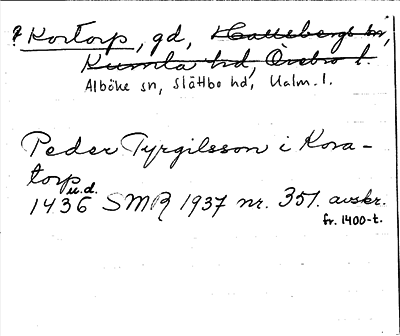 ? Kortorp, gd, Hallsbergs sn,
Kumla hd, Örebro l.
Alböke sn, Slättbo hd, Kalm. l.
Peder Tyrgilsson i Kora-
torp
u.d.
1436 SMR 1937 nr. 351. avskr.
fr. 1400-t.